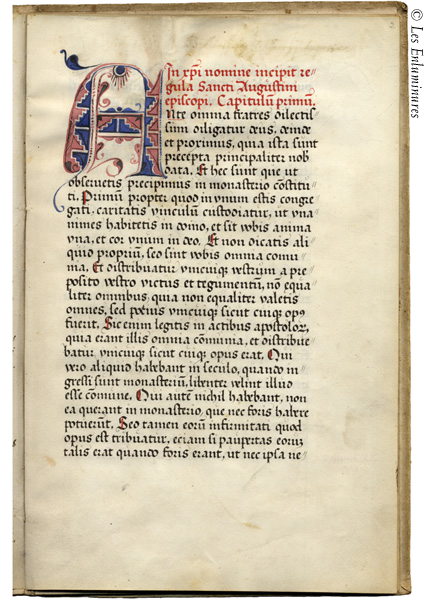 In xp̄i nomine incipit re-
gula Sancti Augustini
episcopi. Capitulum primū.
Ante omnia fratres dilectis
simi diligatur deus, deinde
et proximus, quia ista sunt
precepta principaliter nob
data. Et hec sunt que ut
obseruetis precipimus in monasterio constitu
ti. Primum propter quod in unum estis congre
gati, caritatis uinculū custodiatur, ut una
nimes habitetis in domo, et sit uobis anima
una, et cor unum in deo. Et non dicatis ali
quid proprium, sed sint uobis omnia comu
nia. Et distribuatur unicuiqꝫ uestrum a pre
posito uestro uictus et tegumentū, nō equa
liter omnibus, quia non equaliter ualetis
omnes, sed potius unicuiqꝫ sicut cuiqꝫ opꝰ
fuerit. Sic enim legitis in actibus apostoloꝝ,
quia erant illis omnia comunia, et distribue
batur unicuiqꝫ sicut cuiqꝫ opus erat. Qui
uero aliquid habebant in seculo, quando in
gressi sunt monasteriū, libenter uelint illud
esse comune. Qui autē nichil habebant, non
ea querant in monasterio, que nec foris habere
potuerūt. Sed tamen eorū infirmitati quod
opus est tribuatur, eciam si paupertas eorū
talis erat quando foris erant, ut nec ipsa ne
© Les Enluminures